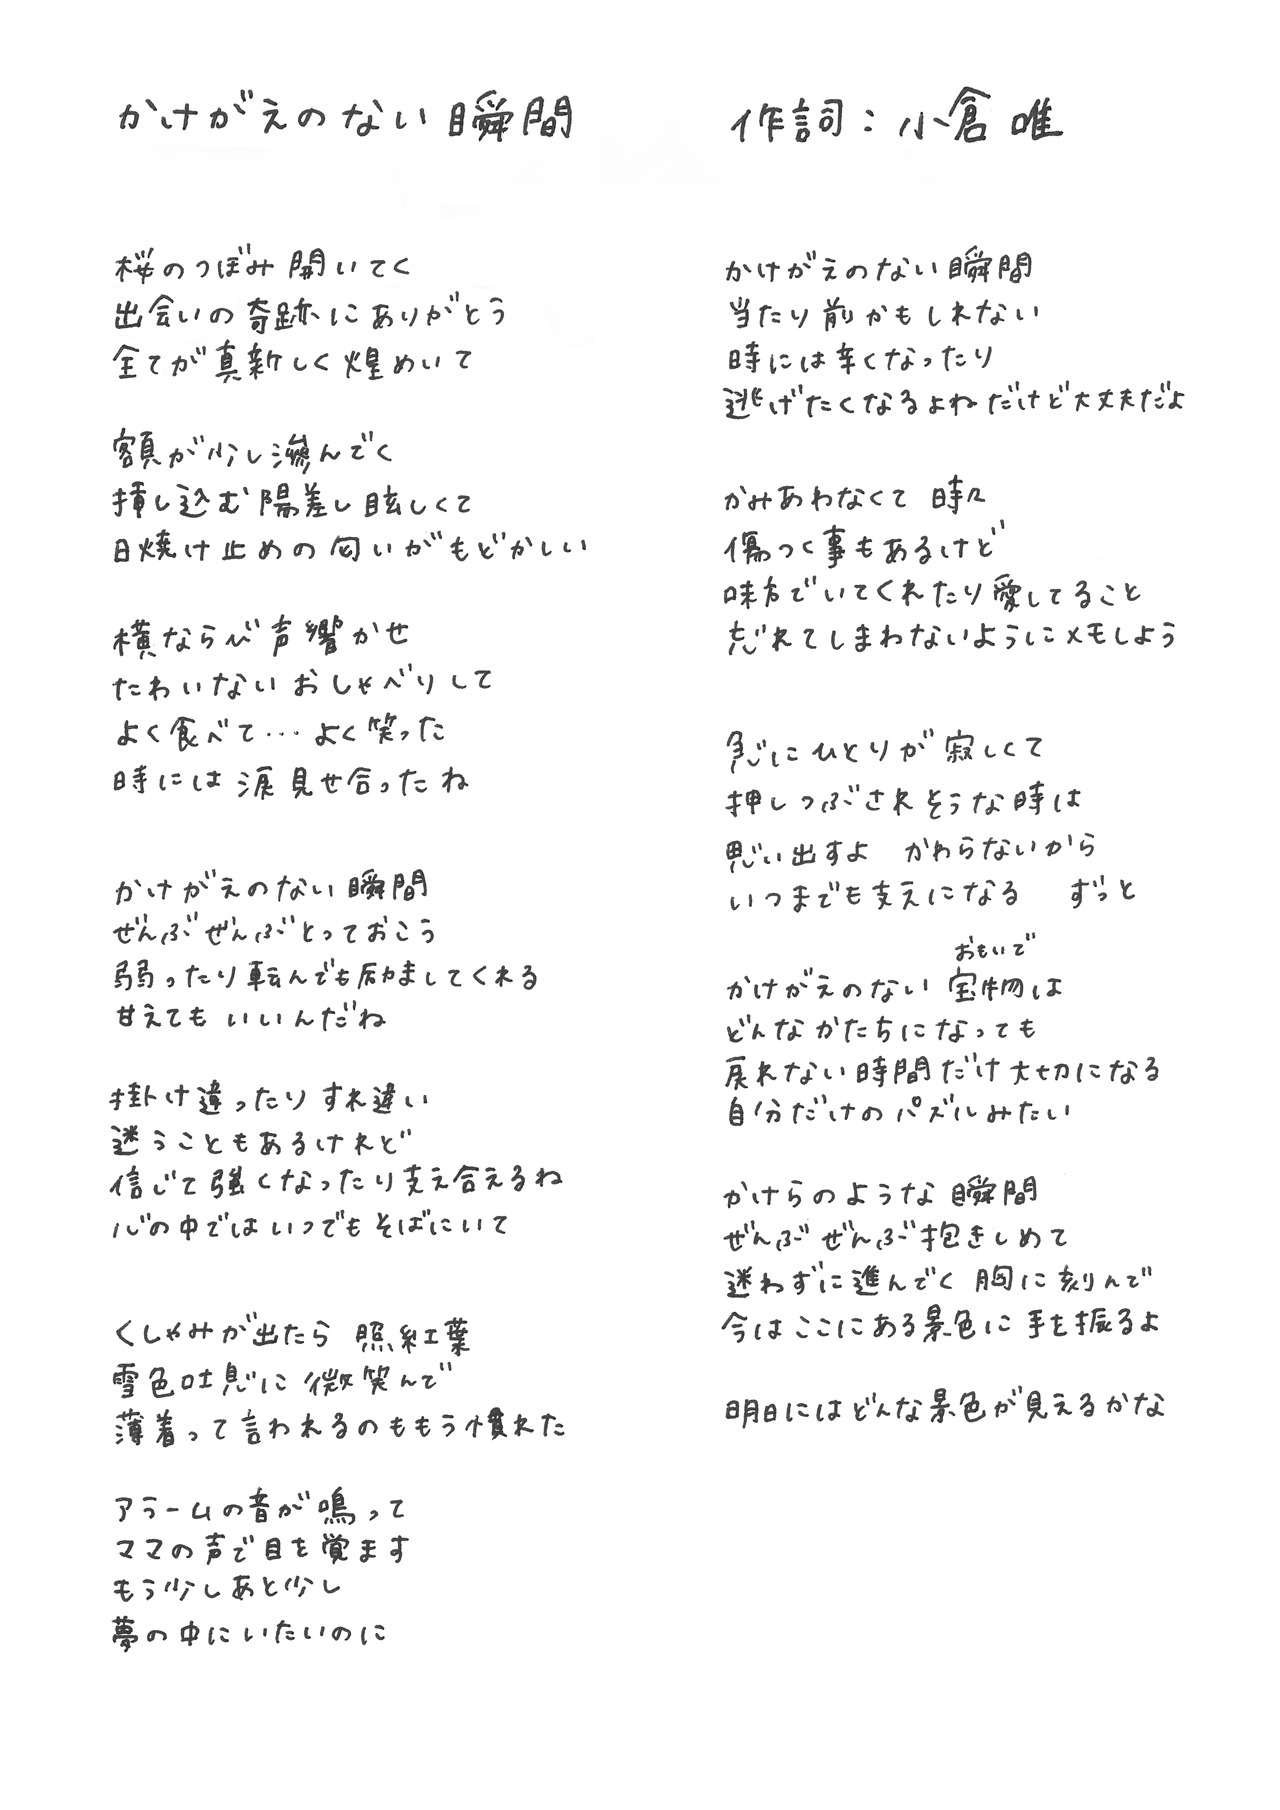 かけがえのない瞬間
作詞：小倉唯
桜のつぼみ 開いてく
出会いの奇跡にありがとう
全てが真新しく煌めいて
額が少し滲んでく
挿し込む陽差し眩しくて
日焼け止めの匂いがもどかしい
横ならび声響かせ
たわいないおしゃべりして
よく食べて…よく笑った
時には涙見せ合ったね
かけがえのない瞬間
ぜんぶぜんぶとっておこう
弱ったり転んでも励ましてくれる
甘えてもいいんだね
掛け違ったりすれ違い
迷うこともあるけれど
信じて強くなったり支え合えるね
心の中ではいつでもそばにいて
くしゃみが出たら 照紅葉
雪色吐息に微笑んで
薄着って言われるのももう慣れた
アラームの音が鳴って
ママの声で目を覚ます
もう少しあと少し
夢の中にいたいのに
かけがえのない瞬間
当たり前かもしれない
時には辛くなったり
逃げたくなるよねだけど大丈夫だよ
かみあわなくて 時々
傷つく事もあるけど
味方でいてくれたり愛してること
忘れてしまわないようにメモしよう
急にひとりが寂しくて
押しつぶされそうな時は
思い出すよ かわらないから
いつまでも支えになる ずっと
おもいで
かけがえのない宝物は
どんなかたちになっても
戻れない時間だけ大切になる
自分だけのパズルみたい
かけらのような瞬間
ぜんぶぜんぶ抱きしめて
迷わずに進んでく 胸に刻んで
今はここにある景色に手を振るよ
明日にはどんな景色が見えるかな